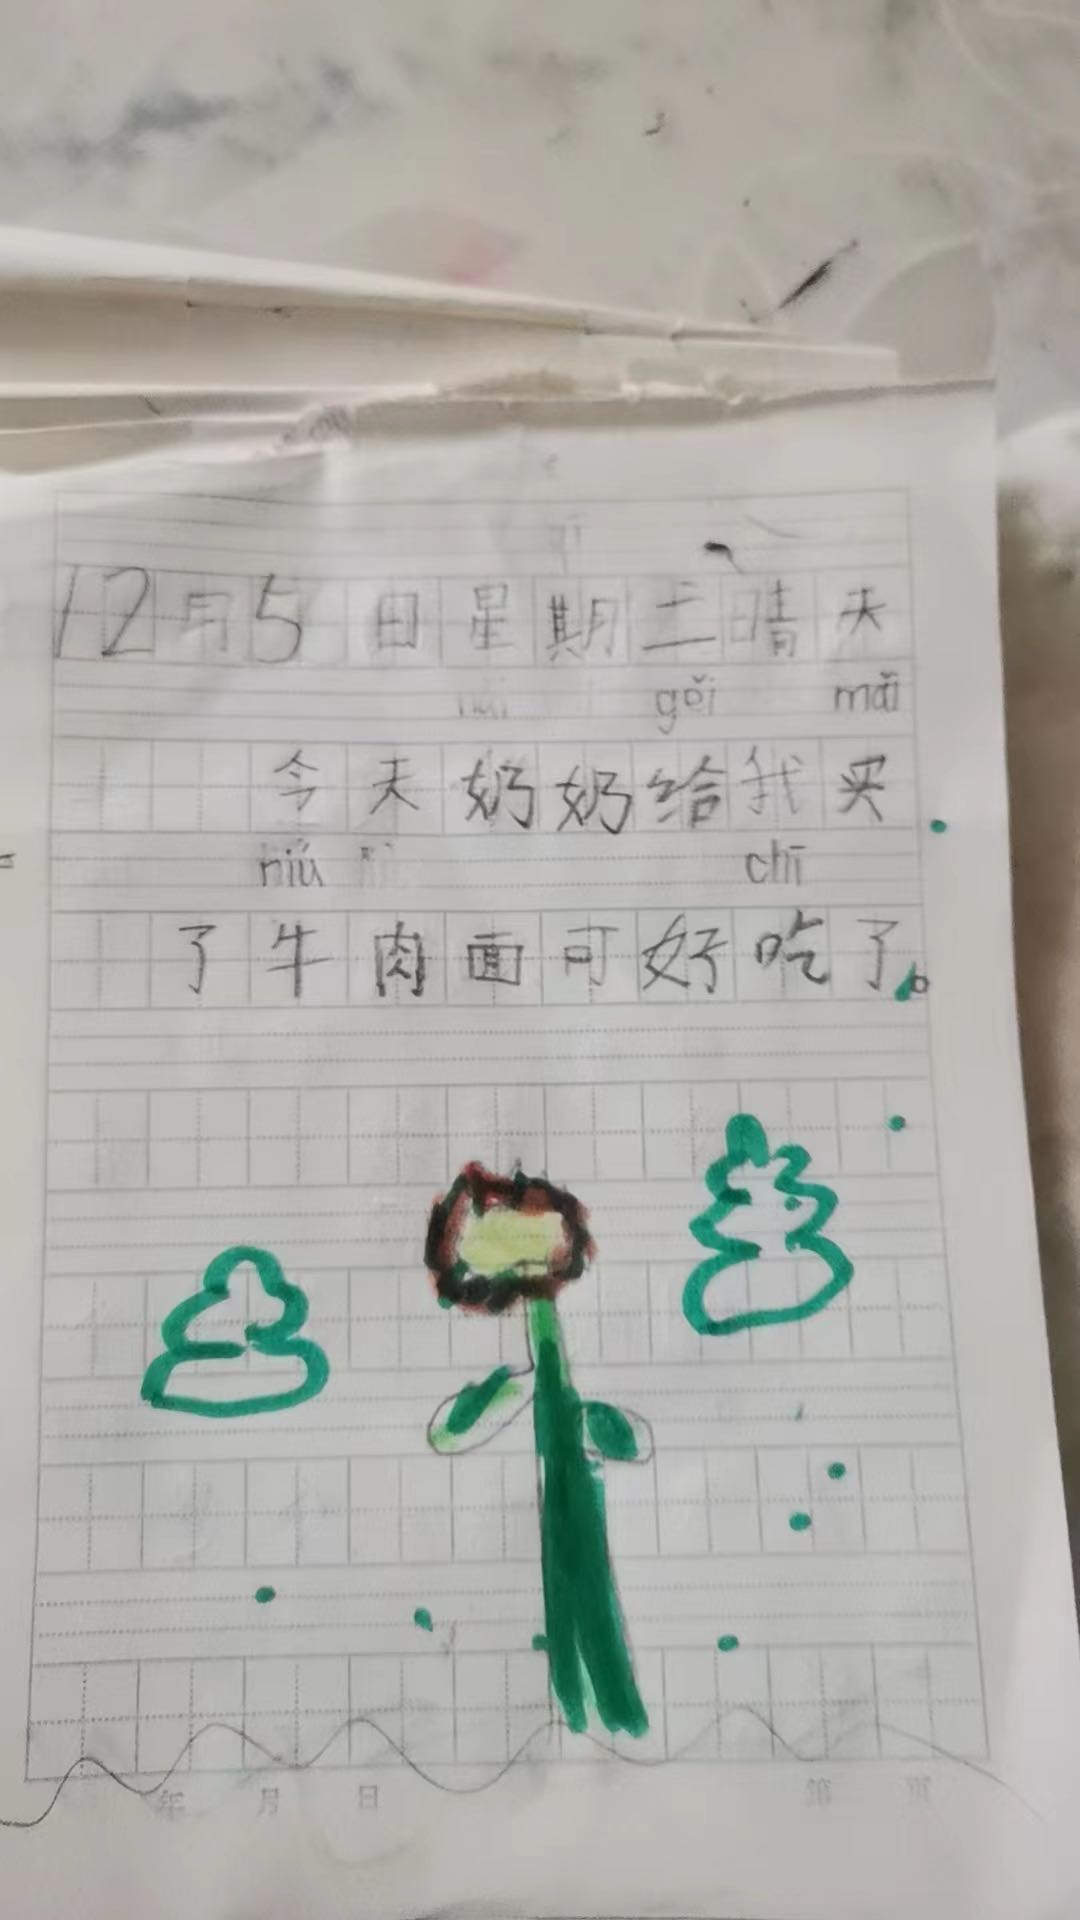 12月5日星期二晴天
gěi mǎi
今天奶奶给我买
niú chī
了牛肉面可好吃了。
年 月 日 第 页